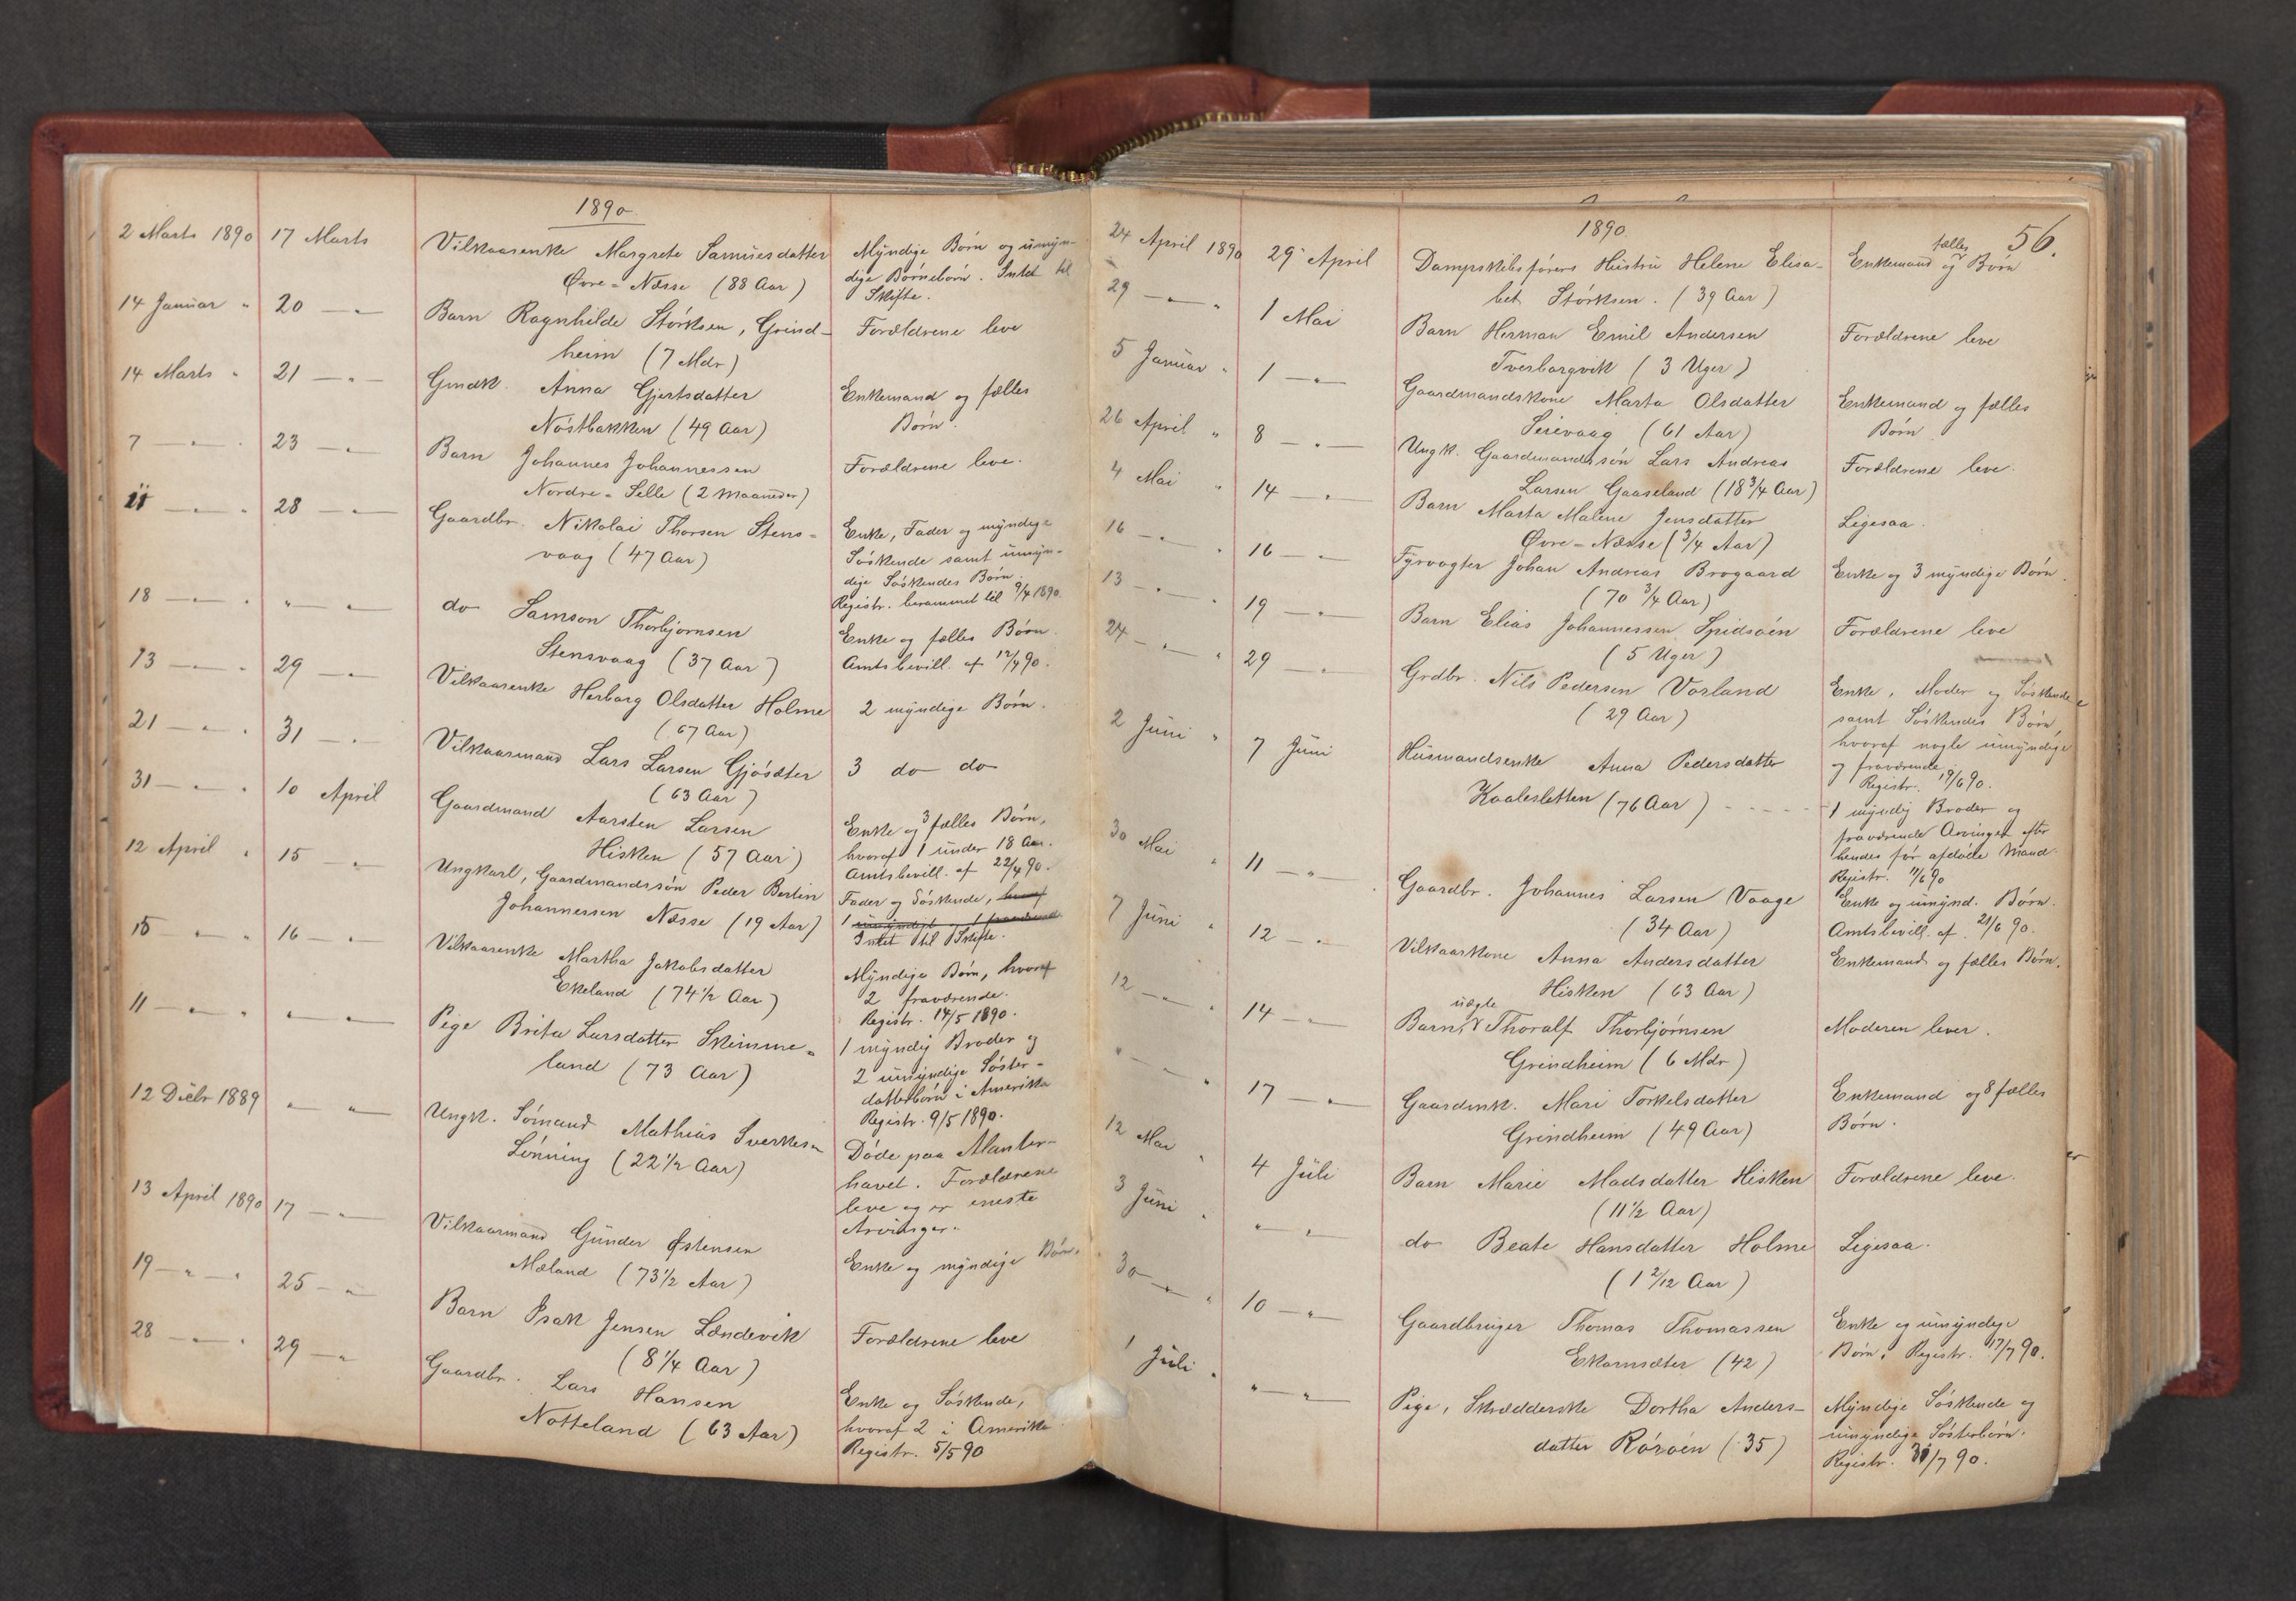 1890
2 Marts 1890 17 Marts Vilkaarsenke Margrete Samuesdatter Myndige Børn og umyn-
Øvre-Næsse (88 Aar) dige Børnebørn. Intet til
Skifte.
14 Januar " 20 — " — Barn Ragnhilde Størksen, Grind- Forældrene leve
heim (7 Mdr)
14 Marts " 21 — " — Gmdk. Anna Gjertsdatter Enkemand og fælles
Nøstbakken (49 Aar) Børn.
7 — " — " 23 — " — Barn Johannes Johannessen Forældrene leve.
Nordre-Selle (2 Maaneder)
11 — " — " 28 — " — Gaardbr. Nikolai Thorsen Stens- Enke, Fader og myndige
vaag (47 Aar) Søskende samt umyn-
dige Søskendes Børn.
Registr. berammet til 9/4 1890.
18 — " — " " — " — do Samson Thorbjørnsen Enke og fælles Børn.
Stensvaag (37 Aar) Amtsbevill. af 12/4 90.
13 — " — " 29 — " — Vilkaarsenke Herborg Olsdatter Holme 2 myndege Børn.
(67 Aar)
21 — " — " 31 — " — Vilkaarsmand Lars Larsen Gjøsæter 3 do do
(63 Aar)
31 — " — " 10 April Gaardmand Aarsten Larsen Enke og 3 fælles Børn,
Hisken (57 Aar) hvoraf 1 under 18 Aar.
Amtsbevill. af 22/4 90.
12 April " 15 — " — Ungkarl, Gaardmandssøn Peder Bertin Fader og Søskende, hvoraf
Johannessen Næsse (19 Aar) 1 umyndigt 1 fraværende
Intet til Skifte.
15 — " — " 16 — " — Vilkaarsenke Martha Jakobsdatter Myndige Børn, hvoraf
Ekeland (74 1/2 Aar) 2 fraværende.
Registr. 14/5 1890.
11 — " — " " — " — Pige Brita Larsdatter Skimme- 1 myndig Broder og
land (73 Aar) 2 umyndige Søster-
datterbørn i Amerika
Registr. 9/5 1890.
12 Decbr 1889 " — " — Ungk. Sømand Mathias Sverkesen Døde paa Atlanter-
Lønning (22 1/2 Aar) havet. Forældrene
leve og er eneste
Arvinger.
13 April 1890 17 — " — Vilkaarmand Gunder Østensen Enke og myndige Børn.
Mæland (73 1/2 Aar)
19 — " — " 25 — " — Barn Isak Jensen Lændevik Forældrene leve
(8 1/4 Aar)
28 — " — " 29 — " — Gaardbr. Lars Hansen Enke og Søskende,
Notteland (63 Aar) hvoraf 2 i Amerika
Registr. 5/5 90
1890. 56.
24 April 1890 29 April Dampskibsførers Hustru Helene Elisa- Enkemand og fælles Børn
bet Størksen. (39 Aar)
29 — " — " 1 Mai Barn Herman Emil Andersen Forældrene leve
Tverborgvik (3 Uger)
5 Januar " 1 — " — Gaardmandskone Marta Olsdatter Enkemand og fælles
Seievaag (61 Aar) Børn
26 April " 8 — " — Ungk. Gaardmandssøn Lars Andreas Forældrene leve.
Larsen Gaaseland (18 3/4 Aar)
4 Mai " 14 — " — Barn Marta Maline Jensdatter Ligesaa.
Øvre-Næsse (3/4 Aar)
16 — " — " 16 — " — Fyrvogter Johan Andreas Brogaard Enke og 3 myndige Børn.
(70 3/4 Aar)
13 — " — " 19 — " — Barn Elias Johannessen Spidsøen Forældrene leve
(5 Uger)
24 — " — " 29 — " — Grdbr. Nils Pedersen Vorland Enke, Moder og Søskende
(29 Aar) samt Søskendes Børn,
hvoraf nogle umyndige
og fraværende.
Registr. 19/6 90.
2 Juni " 7 Juni Husmandsenke Anna Pedersdatter
Kaalesletten (76 Aar) - - - - - 1 myndig Broder og
fraværende Arvinger efter
hendes før afdøde Mand.
Registr. 11/6 90
30 Mai " 11 — " — Gaardbr. Johannes Larsen Vaage Enke og umynd. Børn.
(34 Aar) Amtsbevill. af 21/6 90.
7 Juni " 12 — " — Vilkaarskone Anna Andersdatter Enkemand og fælles Børn.
Hisken (63 Aar)
12 — " — " 14 — " — Barn, uægte Thoralf Thorbjørnsen Moderen lever.
Grindheim (6 Mdr)
" — " — " 17 — " — Gaardmk. Mari Torkelsdatter Enkemand og 8 fælles
Grindheim (49 Aar) Børn.
12 Mai " 4 Juli Barn Marie Madsdatter Hisken Forældrene leve.
(11 1/2 Aar)
3 Juni " " — " — do Beate Hansdatter Holme Ligesaa.
(1 2/12 Aar)
30 — " — " 10 — " — Gaardbruger Thomas Thomassen Enke og umyndige
Ekornsæter (42) Børn. Registr. 17/7 90.
1 Juli " " — " — Pige, Skrædderske Dortha Anders- Myndige Søskende og
datter Rørøen (35) umyndige Søsterbørn.
Registr. 31/7 90.